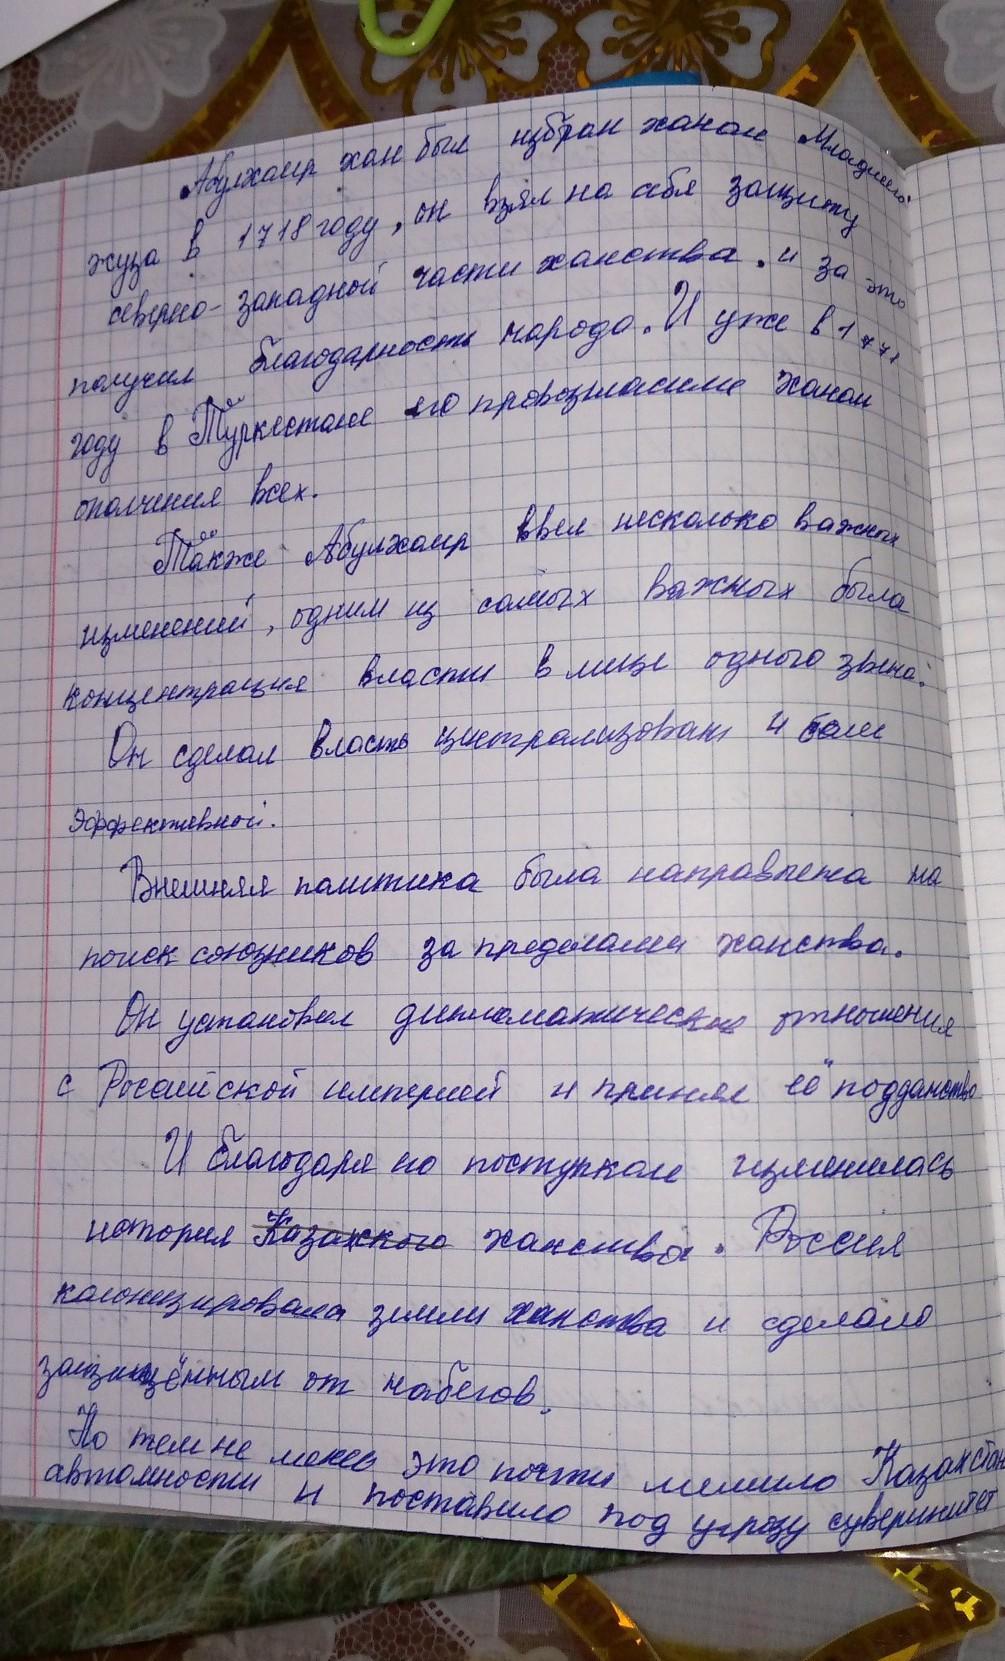 Абулхаир хан был избран ханом Младшего
жуза в 1718 году, он взял на себя защиту
северно-западной части ханства. и за это
получил благодарность народа. И уже в 1771
году в Туркестане его провозгласили ханом
ополчения всех.
Также Абулхаир ввел несколько важных
изменений, одним из самых важных была
концентрация власти в лице одного звена.
Он сделал власть централизован и более
эффективной.
Внешняя политика была направлена на
поиск союзников за пределами ханства.
Он установил дипломатические отношения
с Российской империей и принял её подданство
И благодаря его поступкам изменилась
история Казахского ханства. Россия
колонизировала земли ханства и сделало
защищённым от набегов.
Но тем не менее это почти лишило Казахстан
автомности и поставило под угрозу суверинитет